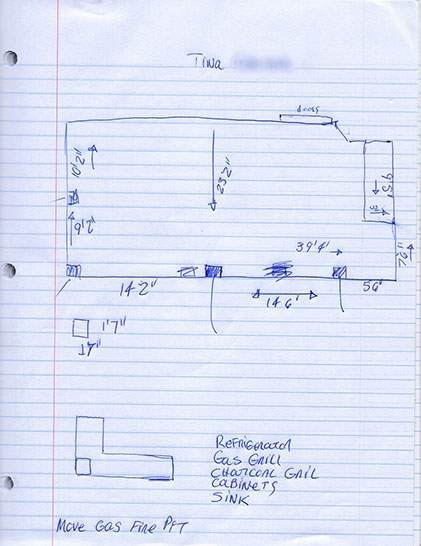 Tina
doors
10'2"
23'2"
9'5'
9'2"
39'4"
7'6"
14'2"
14'6'
5'6'
1'7"
1'7"
Refrigerator
Gas Grill
Charcoal Grill
Cabinets
Sink
Move Gas Fire Pit